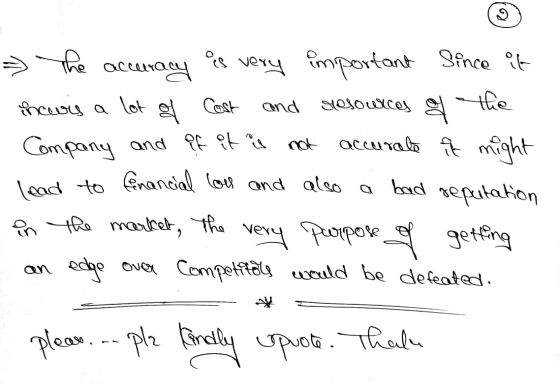 2
⇒ The accuracy is very important Since it
incurs a lot of Cost and resources of the
Company and if it is not accurate it might
lead to financial loss and also a bad reputation
in the market, the very purpose of getting
an edge over Competitors would be defeated.
please. -- plz kindly upvote.